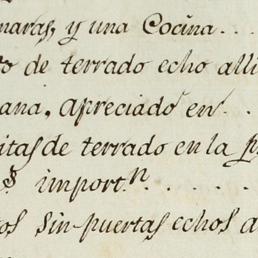 maras, y una Cocina . . .
to de terrado echo alli
ana, apreciado en . .
itas de terrado en la p
§ import.n . . . . .
os sin puertas echos a